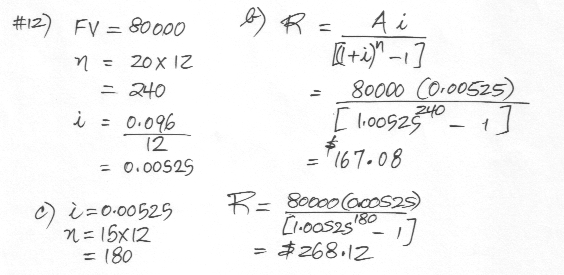 #12) FV = 80000
n = 20 x 12
= 240
i = 0.096
12
= 0.00525
b) R = A i
[(1+i)^n -1]
= 80000 (0.00525)
[1.00525^240 - 1]
= $167.08
c) i = 0.00525
n = 15x12
= 180
R = 80000(0.00525)
[1.00525^180 - 1]
= $268.12